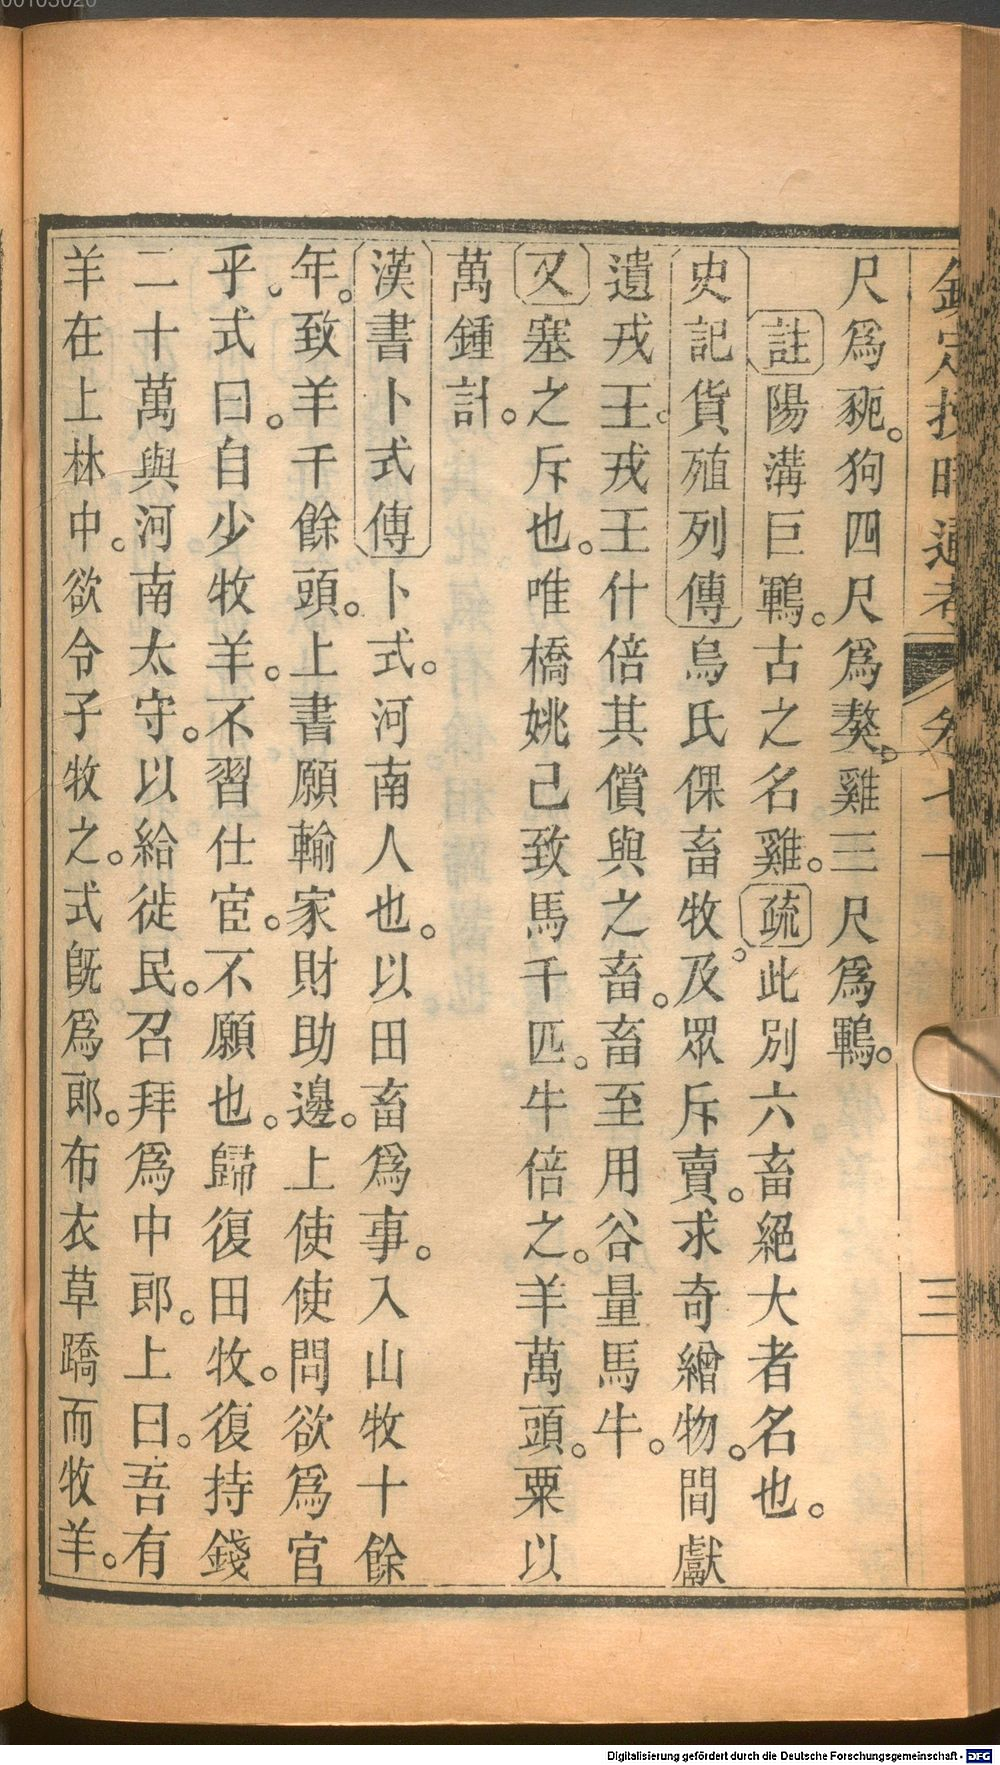 00103020
欽定授時通考 卷七十 三
尺爲豟。狗四尺爲獒。雞三尺爲鶤。
註陽溝巨鶤。古之名雞。疏此別六畜絕大者名也。
史記貨殖列傳烏氏倮畜牧。及眾斥賣。求奇繒物。間獻
遺戎王。戎王什倍其償與之畜。畜至用谷量馬牛。
又塞之斥也。唯橋姚已致馬千匹。牛倍之。羊萬頭。粟以
萬鍾計。
漢書卜式傳卜式。河南人也。以田畜爲事。入山牧十餘
年。致羊千餘頭。上書願輸家財助邊。上使使問欲爲官
乎。式曰。自少牧羊。不習仕宦。不願也。歸復田牧。復持錢
二十萬與河南太守。以給徙民。召拜爲中郎。上曰。吾有
羊在上林中。欲令子牧之。式旣爲郎。布衣草蹻而牧羊。
Digitalisierung gefördert durch die Deutsche Forschungsgemeinschaft - DFG